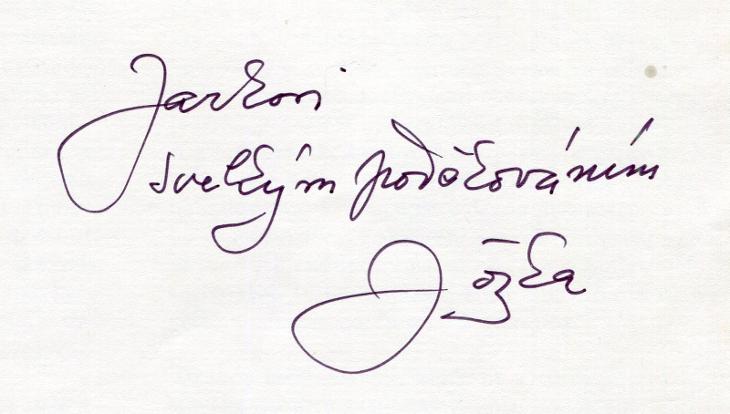 Jarkovi
s velkým poděkováním
Józka